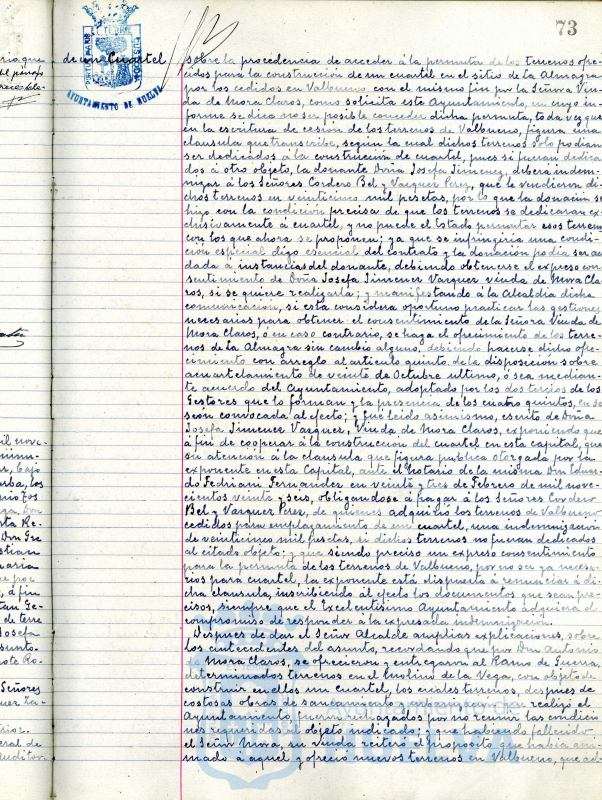 73
de un Cuartel
AYUNTAMIENTO DE HUELVA
sobre la procedencia de acceder á la permuta de los terrenos ofre-
cidos para la construcción de un cuartel en el sitio de la Almagra
por los cedidos en Valbueno con el mismo fin por la Señora Viu-
da de Mora Claros, como solicita este Ayuntamiento, en cuyo in-
forme se dice no ser posible conceder dicha permuta, toda vez que
en la escritura de cesión de los terrenos de Valbueno, figura una
clausula que transcribe, según la cual dichos terrenos solo podian
ser dedicados á la construcción de cuartel, pues si fueran dedica-
dos á otro objeto, la donante Doña Josefa Jimenez, deberá indem-
nizar á los Señores Cordero Bel y Vazquez Perez, que le vendieron di-
chos terrenos en veinticinco mil pesetas, por lo que la donación se
hizo con la condición precisa de que los terrenos se dedicaran ex-
clusivamente á cuartel, y no puede el Estado permutar esos terrenos
con los que ahora se proponen; ya que se infringiria una condi-
ción especial digo esencial del contrato y la donación podia ser anu-
lada á instancias del donante, debiendo obtenerse el expreso con-
sentimiento de Doña Josefa Jimenez Vazquez viuda de Mora Cla-
ros, si se quiere realizarla; y manifestando á la Alcaldia dicha
comunicación, si esta considera oportuno practicar las gestiones
necesarias para obtener el consentimiento de la Señora Viuda de
Mora Claros, ó en caso contrario, se haga el ofrecimiento de los terre-
nos de la Almagra sin cambio alguno, debiendo hacerse dicho ofre-
cimiento con arreglo al articulo quinto de la disposición sobre
acuartelamiento de veinte de Octubre ultimo, ó sea median-
te acuerdo del Ayuntamiento, adoptado por los dos tercios de los
Gestores que lo forman y la presencia de los cuatro quintos, en se-
sión convocada al efecto; y fué leido asimismo, escrito de Doña
Josefa Jimenez Vazquez, Viuda de Mora Claros, exponiendo que
á fin de cooperar á la construcción del cuartel en esta capital, que
en atención á la clausula que figura publica otorgada por la
exponente en esta Capital, ante el Notario de la misma Don
Fedriani Fernandez en veinte y tres de Febrero de mil nove-
cientos veinte y seis, obligandose á pagar á los Señores Cordero
Bel y Vazquez Perez, de quienes adquirió los terrenos de Valbueno
cedidos para emplazamiento de un cuartel, una indemnización
de veinticinco mil pesetas, si dichos terrenos no fueran dedicados
al citado objeto; y que siendo preciso un expreso consentimiento
para la permuta de los terrenos de Valbueno, por no ser ya necesa-
rios para cuartel, la exponente está dispuesta á renunciar á di-
cha clausula, inscribiendo al efecto los documentos que sean pre-
cisos, siempre que el Excelentisimo Ayuntamiento adquiera el
compromiso de responder á la expresada indemnización.
Despues de dar el Señor Alcalde amplias explicaciones, sobre
los antecedentes del asunto, recordando que por Don Antonio
de Mora Claros, se ofrecieron y entregaron al Ramo de Guerra,
determinados terrenos en el Molino de la Vega, con objeto de
construir en ellos un cuartel, los cuales terrenos, despues de
costosas obras de saneamiento que realizó el
Ayuntamiento, fueron rechazados por no reunir las condicio-
nes requeridas al objeto indicado; y que habiendo fallecido
el Señor Mora, su viuda reiteró el proposito que habia ani-
mado á aquel y ofreció nuevos terrenos en Valbueno, que ad-